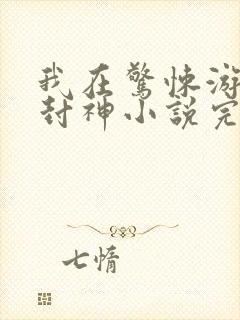 我在驚悚游
封神小說完
七惰